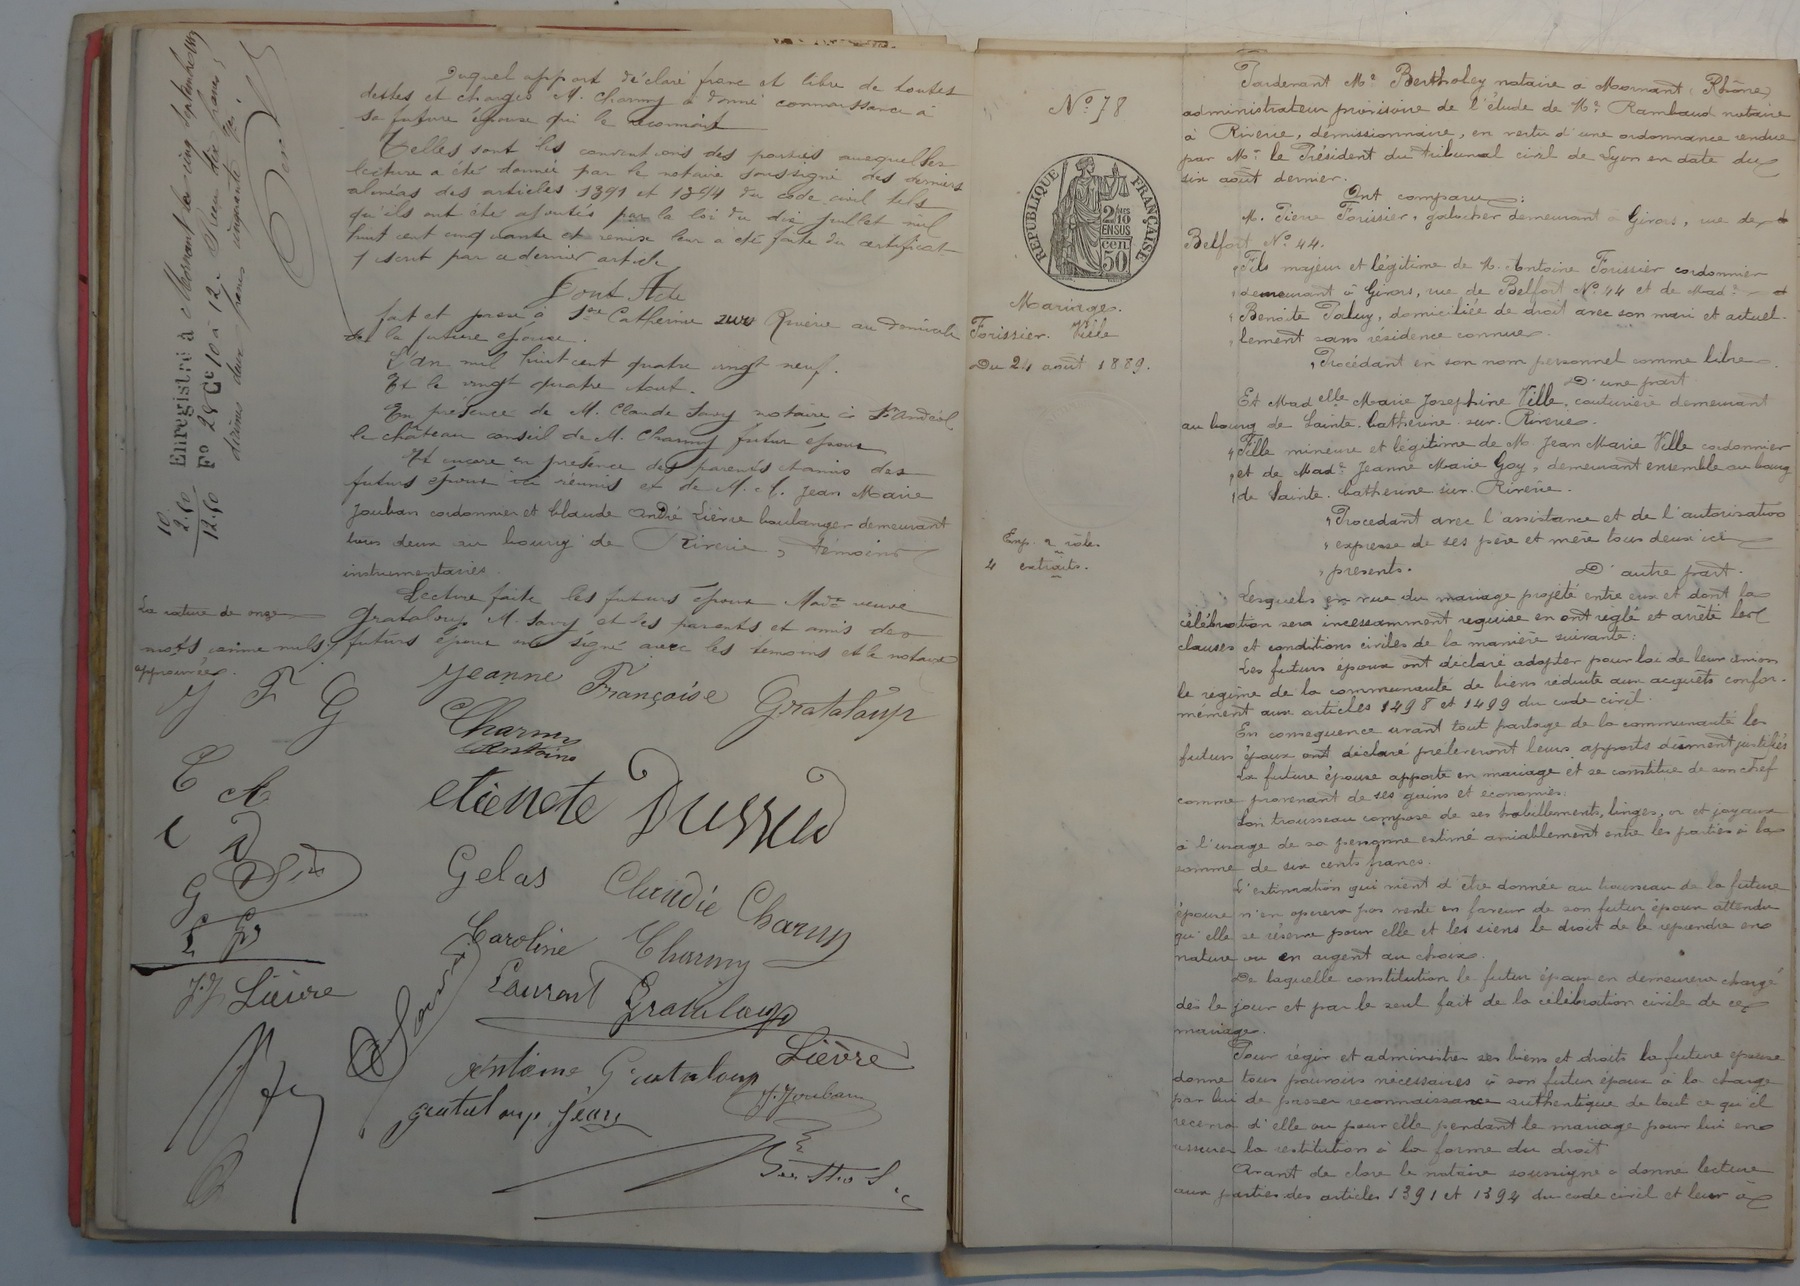 Duquel apport déclaré franc et libre de toutes
dettes et charges M. Charmy a donné connaissance à
sa future épouse qui le reconnait
Telles sont les conventions des parties auxquelles
lecture a été donnée par le notaire soussigné des derniers
alinéas des articles 1391 et 1394 du code civil tels
qu'ils ont été ajoutés par la loi du dix juillet mil
huit cent cinquante et remise leur a été faite du certificat
prescrit par ce dernier article
Dont Acte
fait et passé à Ste Catherine sur Riverie au domicile
de la future épouse.
L'an mil huit cent quatre vingt neuf.
Et le vingt quatre Aout.
En présence de M. Claude Savy notaire à St Andéol
le château conseil de M. Charmy futur époux
Et encore en présence des parents et amis des
futurs époux ici réunis et de M. M. Jean Marie
Jouban cordonnier et Claude André Lièvre boulanger demeurant
tous deux au bourg de Riverie, témoins
instrumentaires.
Lecture faite les futurs époux Made veuve
Grataloup M. Savy et les parents et amis des
futurs époux ont signé avec les témoins et le notaire
La rature de onze
mots comme nuls
approuvée.
Enregistré à Mornant le cinq septembre 1889
Fo 28 Ce 10 à 12. Reçu dix francs
décimes deux francs cinquante
10
2.50
12.50
J F G
Jeanne Françoise Grataloup
Charmy
Antoine
C A
etienete Dussud
Gelas Claudie Charmy
Caroline Charmy
Laurent Grataloup
J.J Lièvre
Savy
Antoine Grataloup
Lièvre
J. Jouban
grataloup Jean
No 78
RÉPUBLIQUE FRANÇAISE
2/10
EN SUS
50 cen
Mariage.
Forissier. Ville
Du 24 août 1889.
Exp. 2 rôles
4 extraits.
Pardevant Me Bertholey notaire à Mornant (Rhône)
administrateur provisoire de l'étude de Me Rambaud notaire
à Riverie, démissionnaire, en vertu d'une ordonnance rendue
par Mr le Président du tribunal civil de Lyon en date du
six août dernier.
Ont comparu:
M. Pierre Forissier, galocher demeurant à Givors, rue de
Belfort No 44.
Fils majeur et légitime de M. Antoine Forissier cordonnier
demeurant à Givors, rue de Belfort No 44 et de Made
Benoite Paluy, domiciliée de droit avec son mari et actuel-
lement sans résidence connue.
Procédant en son nom personnel comme libre.
D'une part.
Et Madelle Marie Josephine Ville, couturière demeurant
au bourg de Sainte Catherine sur Riverie.
Fille mineure et légitime de M. Jean Marie Ville cordonnier
et de Made Jeanne Marie Goy, demeurant ensemble au bourg
de Sainte Catherine sur Riverie.
Procédant avec l'assistance et de l'autorisation
expresse de ses père et mère tous deux ici
présents.
D'autre part.
Lesquels en vue du mariage projeté entre eux et dont la
célébration sera incessamment requise en ont réglé et arrêté les
clauses et conditions civiles de la manière suivante:
Les futurs époux ont déclaré adopter pour loi de leur union
le régime de la communauté de biens réduite aux acquêts confor-
mément aux articles 1498 et 1499 du code civil.
En conséquence avant tout partage de la communauté les
futurs époux ont déclaré prélèveront leurs apports dûment justifiés
La future épouse apporte en mariage et se constitue de son chef
comme provenant de ses gains et economies:
Son trousseau composé de ses habillements, linges, or et joyaux
à l'usage de sa personne estimé amiablement entre les parties à la
somme de six cents francs.
L'estimation qui vient d'être donnée au trousseau de la future
épouse n'en operera pas vente en faveur de son futur époux attendu
qu'elle se réserve pour elle et les siens le droit de le reprendre en
nature ou en argent au choix.
De laquelle constitution le futur époux en demeurera chargé
dès le jour et par le seul fait de la célébration civile de ce
mariage.
Pour régir et administrer ses biens et droits la future épouse
donne tous pouvoirs nécessaires à son futur époux à la charge
par lui de passer reconnaissance authentique de tout ce qu'il
recevra d'elle ou pour elle pendant le mariage pour lui en
assurer la restitution à la forme du droit
Avant de clore le notaire soussigné a donné lecture
aux parties des articles 1391 et 1394 du code civil et leur a